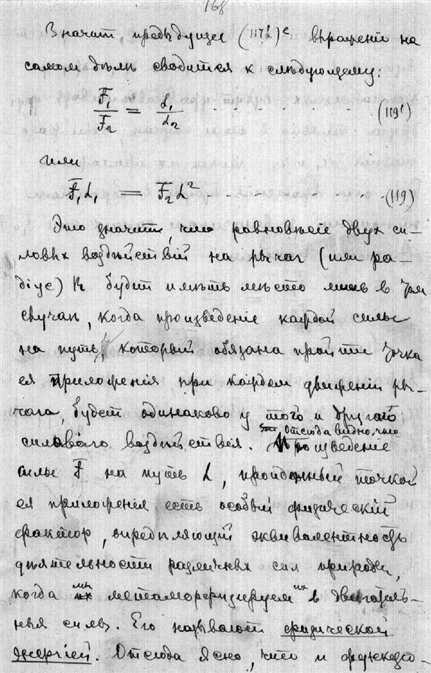 168
Значит, предъдущее (117')е выражение на
самом дѣлѣ сводится к слѣдующему:
F₁/F₂ = L₁/L₂ . . . . (119')
или
F₁L₁ = F₂L² - - - - - (119)
Это значит, что равновѣсіе двух си-
ловых воздѣйствій на рычаг (или ра-
діус) R будет имѣть мѣсто лишь в том
случаѣ, когда произведеніе каждой силы
на путь, который обязана пройти точка
ея приложенія при каждом движеніи ры-
чага, будет одинаково у того и другого
силового воздѣйствія. Отсюда видно, что
Произведеніе
силы F на путь L, пройденный точкой
ея приложенія есть особый физическій
фактор, опредѣляющій эквивалентность
дѣятельности различных сил природы,
когда мы метаморфизируем их в двигатель-
ныя силы. Его называют физической
энергіей. Отсюда ясно, что и